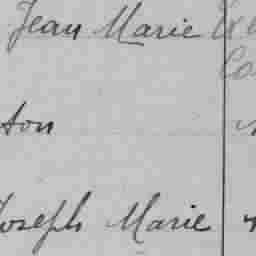 Jean Marie
ton
Joseph Marie